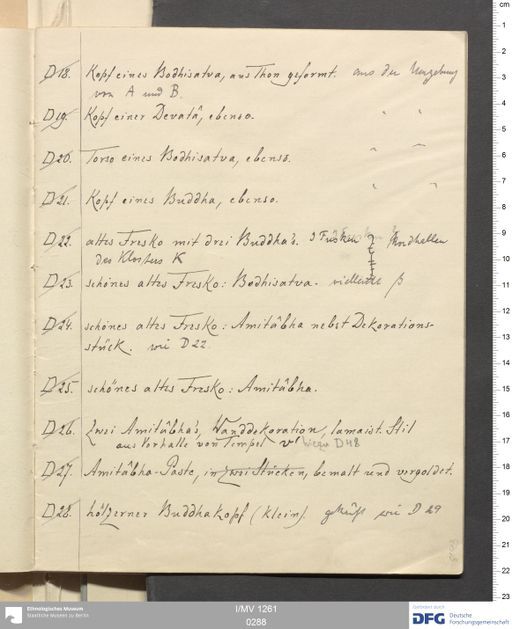 D18. Kopf eines Bodhisatva, aus Thon geformt. aus der Umgebung
von A und B.
D19. Kopf einer Devatâ, ebenso. " "
D20. Torso eines Bodhisatva, ebenso. " "
D21. Kopf eines Buddha, ebenso. " "
D22. altes Fresko mit drei Buddha's. Nordhallen
des Klosters K
D23. schönes altes Fresko: Bodhisatva. vielleicht β
D24. schönes altes Fresko: Amitâbha nebst Dekorations-
stück. wie D22
D25. schönes altes Fresko: Amitâbha.
D26. Zwei Amitâbha's, Wanddekoration, lamaist. Stil
aus Vorhalle von Tempel v' hiezu D48
D27. Amitâbha-Paste, in zwei Stücken, bemalt und vergoldet.
D28. hölzerner Buddhakopf (klein). wie D29
Ethnologisches Museum
Staatliche Museen zu Berlin
I/MV 1261
0288
gefördert durch
DFG Deutsche
Forschungsgemeinschaft
cm
1
2
3
4
5
6
7
8
9
10
11
12
13
14
15
16
17
18
19
20
21
22
23